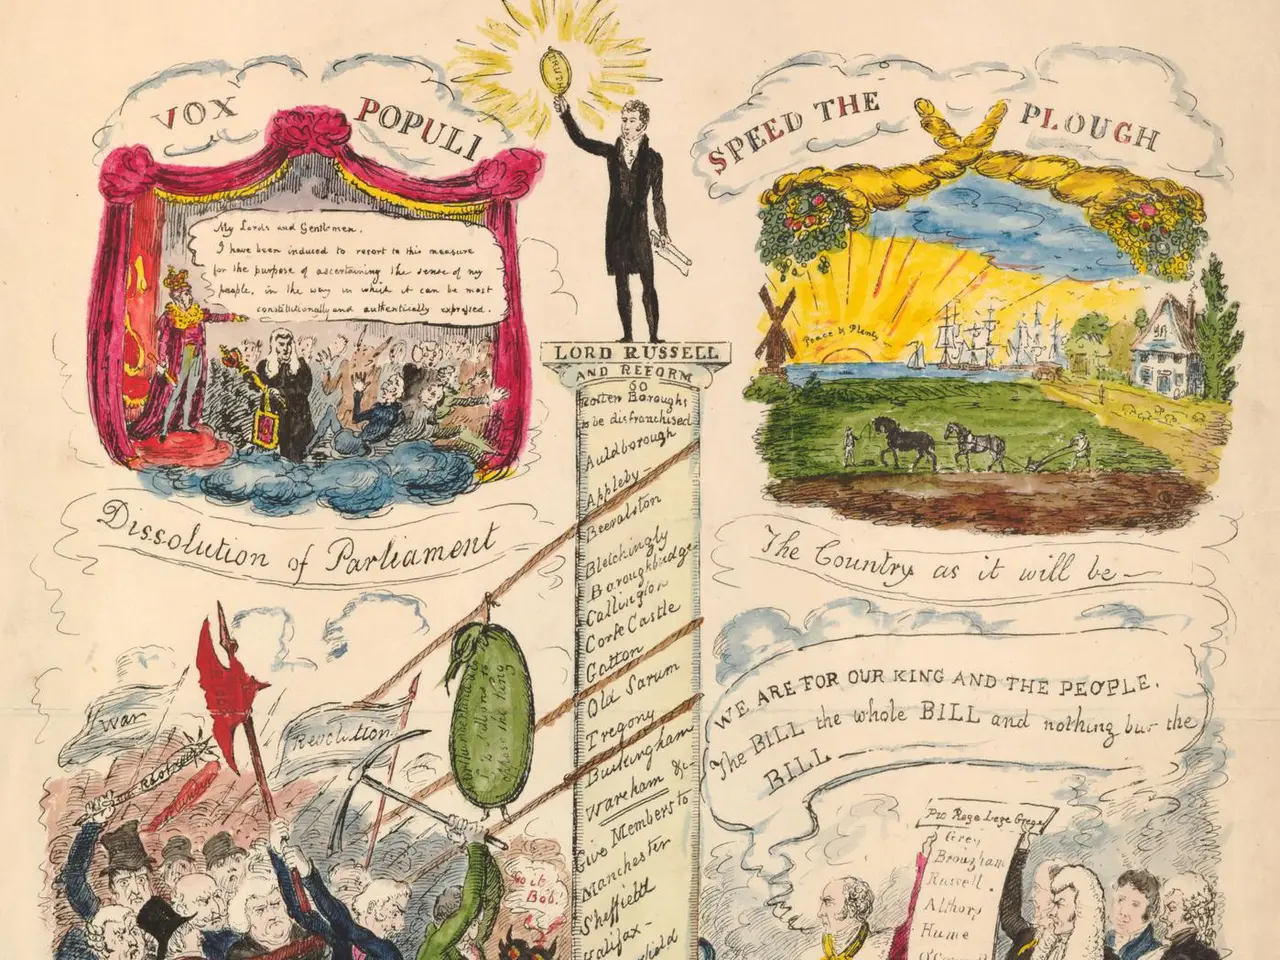 TRUTH
VOX POPULI
My Lords and Gentlemen,
I have been induced to resort to this measure
for the purpose of ascertaining the sense of my
people, in the way in which it can be most
constitutionally and authentically expressed.
Dissolution of Parliament
SPEED THE PLOUGH
Peace & Plenty
The Country as it will be
LORD RUSSELL
AND REFORM
60
rotten Boroughs
to be disfranchised
Auldborough
Appleby
Beeralston
Bletchingly
Boroughbridge
Callington
Corfe Castle
Gatton
Old Sarum
Tregony
Buckingham
Wareham &c
Give Members to
Manchester
Sheffield
Halifax
War
Revolution
Go it
Bob!
WE ARE FOR OUR KING AND THE PEOPLE.
The BILL the whole BILL and nothing but the
BILL
Pro Rege Lege Grege
Grey
Brougham
Russell.
Althorp
Hume